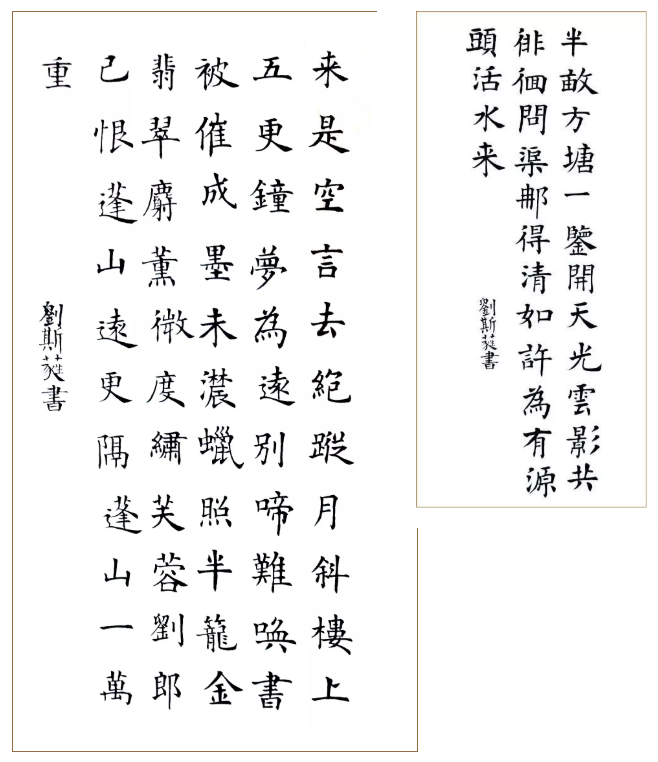 半畝方塘一鑒開天光雲影共
徘徊問渠那得清如許為有源
頭活水来
劉斯蕤書
来是空言去絕蹤月斜樓上
五更鐘夢為遠別啼難喚書
被催成墨未濃蠟照半籠金
翡翠麝薰微度繡芙蓉劉郎
已恨蓬山遠更隔蓬山一萬
重
劉斯蕤書